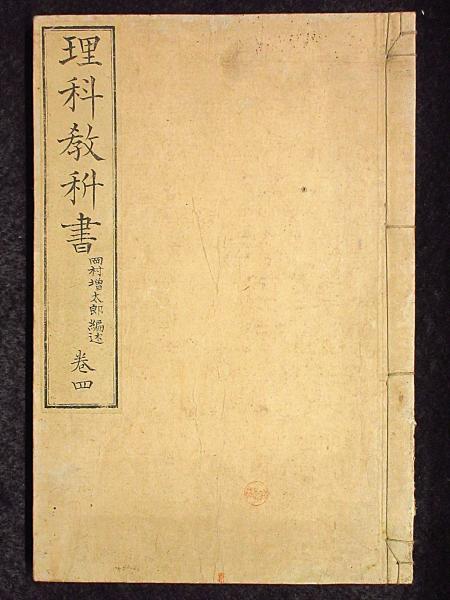 理科教科書
岡村增太郎編述
卷四